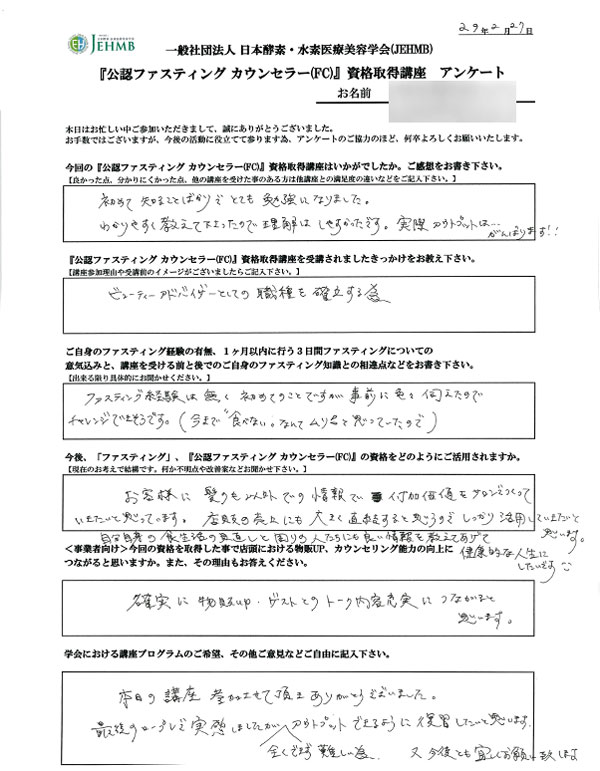 29年2月27日
JEHMB
一般社団法人 日本酵素・水素医療美容学会(JEHMB)
『公認ファスティング カウンセラー(FC)』資格取得講座 アンケート
お名前
本日はお忙しい中ご参加いただきまして、誠にありがとうございました。
お手数ではございますが、今後の活動に役立てて参ります為、アンケートのご協力のほど、何卒よろしくお願いいたします。
今回の『公認ファスティング カウンセラー(FC)』資格取得講座はいかがでしたか。ご感想をお書き下さい。
【良かった点、分かりにくかった点、他の講座を受けた事のある方は他講座との満足度の違いなどをご記入下さい。】
初めて知ることばかりでとても勉強になりました。
わかりやすく教えて下さったので理解はしやすかったです。実際アウトプットは…
がんばります!!
『公認ファスティング カウンセラー(FC)』資格取得講座を受講されましたきっかけをお教え下さい。
【講座参加理由や受講前のイメージがございましたらご記入下さい。】
ビューティーアドバイザーとしての職種を確立する為
ご自身のファスティング経験の有無、1ヶ月以内に行う3日間ファスティングについての
意気込みと、講座を受ける前と後でのご自身のファスティング知識との相違点などをお書き下さい。
【出来る限り具体的にお聞かせください。】
ファスティング経験は無く初めてのことですが事前に色々伺えたので
チャレンジできそうです。(今まで"食べない"なんてムリ!!と思っていたので)
今後、「ファスティング」、『公認ファスティング カウンセラー(FC)』の資格をどのようにご活用されますか。
【現在のお考えで結構です。何か不明点や改善案などお聞かせ下さい。】
お客様に髪のも以外での情報で付加価値をサロンでつくって
いきたいと思っています。店販の売上にも大きく直結すると思うのでしっかり活用していきたいと
思います。
自分自身の食生活の見直しと周りの人たちにも良い情報を教えてあげて
健康的な人生に
したいです
<事業者向け>今回の資格を取得した事で店頭における物販UP、カウンセリング能力の向上に
つながると思いますか。また、その理由もお答えください。
確実に物販up・ゲストとのトーク内容充実につながると
思います。
学会における講座プログラムのご希望、その他ご意見などご自由に記入下さい。
本日の講座参加させて頂きありがとうございました。
最後のロープレで実感しましたがアウトプットできるように復習したいと思います。
全くできず難しい為
又今後とも宜しくお願い致します